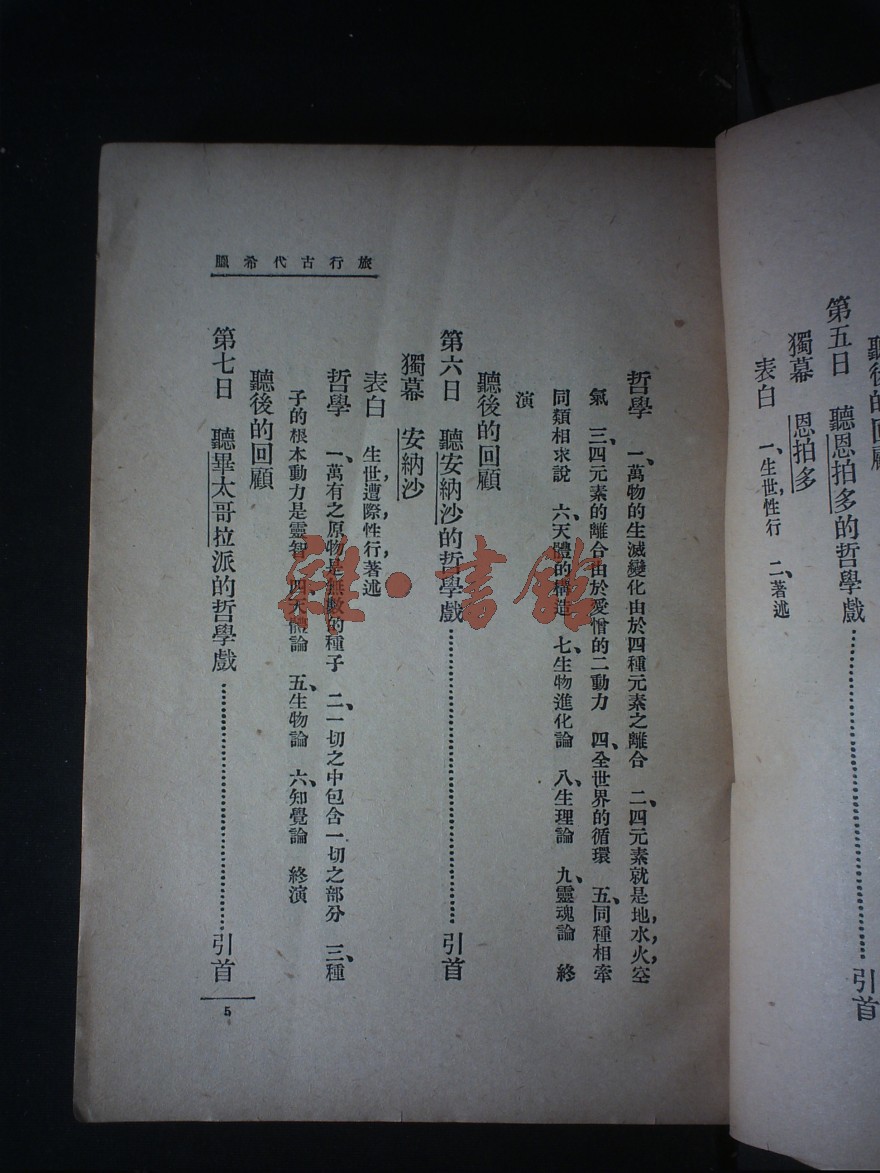 聽後的回顧
第五日　聽恩拍多的哲學戲……引首
獨幕　恩拍多
表白　一、生世，性行　二、著述
旅行古代希臘
哲學　一、萬物的生滅變化由於四種元素之離合　二、四元素就是地，水，火，空
氣　三、四元素的離合由於愛憎的二動力　四、全世界的循環　五、同種相牽
同類相求說　六、天體的構造　七、生物進化論　八、生理論　九、靈魂論　終
演
聽後的回顧
第六日　聽安納沙的哲學戲……引首
獨幕　安納沙
表白　生世，遭際，性行，著述
哲學　一、萬有之原物是無數的種子　二、一切之中包含一切之部分　三、種
子的根本動力是靈智　四、天體論　五、生物論　六、知覺論　終演
聽後的回顧
第七日　聽畢太哥拉派的哲學戲……引首
5
雜·書館